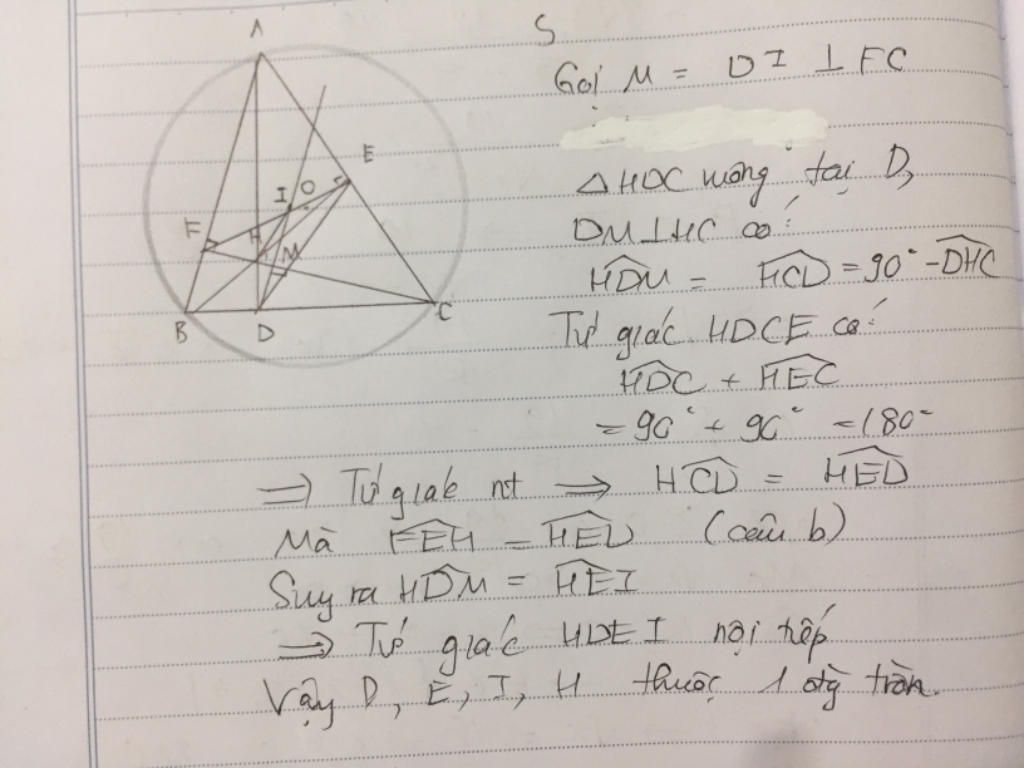 A
S
Gọi M = DI ⊥ FC
E
I
O
F
H
M
B
D
C
△HDC vuông tại D,
DM⊥HC có:
\widehat{HDM} = \widehat{HCD} = 90° - \widehat{DHC}
Tứ giác HDCE có:
\widehat{HDC} + \widehat{HEC}
= 90° + 90° = 180°
⇒ Tứ giác nt ⇒ \widehat{HCD} = \widehat{HED}
Mà \widehat{FEH} = \widehat{HED} (câu b)
Suy ra \widehat{HDM} = \widehat{HEI}
⇒ Tứ giác HDEI nội tiếp
Vậy D, E, I, H thuộc 1 đg tròn.